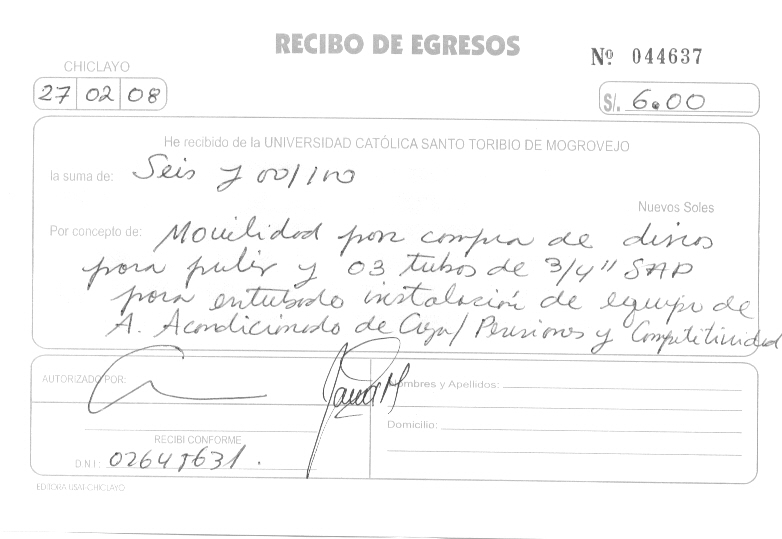 RECIBO DE EGRESOS
Nº 044637
CHICLAYO
27 02 08
S/. 6.00
He recibido de la UNIVERSIDAD CATÓLICA SANTO TORIBIO DE MOGROVEJO
la suma de: Seis y 00/100
Nuevos Soles
Por concepto de: Movilidad por compra de discos
para pulir y 03 tubos de 3/4" SAP
para entubado instalación de equipo de
A. Acondicionado de Caja/ Pensiones y Competitividad
AUTORIZADO POR:
Nombres y Apellidos:
Domicilio:
RECIBI CONFORME
D.N.I: 02645631.
EDITORA USAT CHICLAYO